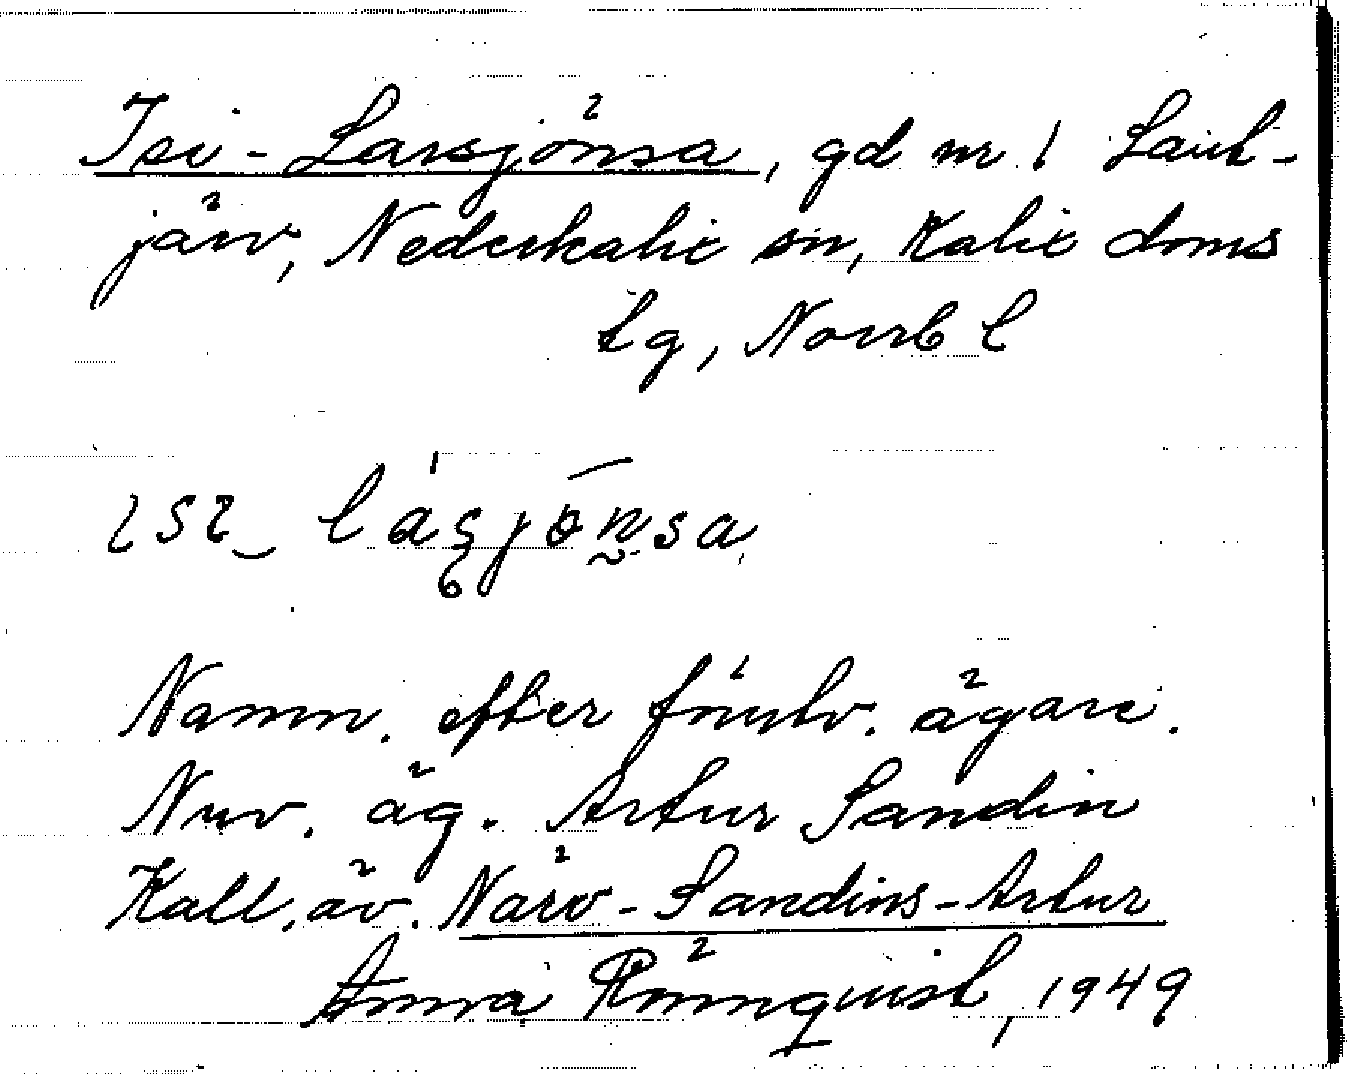 Isi-Larsjönsa, gd nr 1 Lant-
järv, Nederkalix sn, Kalix doms
tg, Norrb l
Namn. efter förutv. ägare.
Nuv. äg. Artur Sandin
Kall. äv. Närv-Sandins-Artur
Anna Rönnquist, 1949